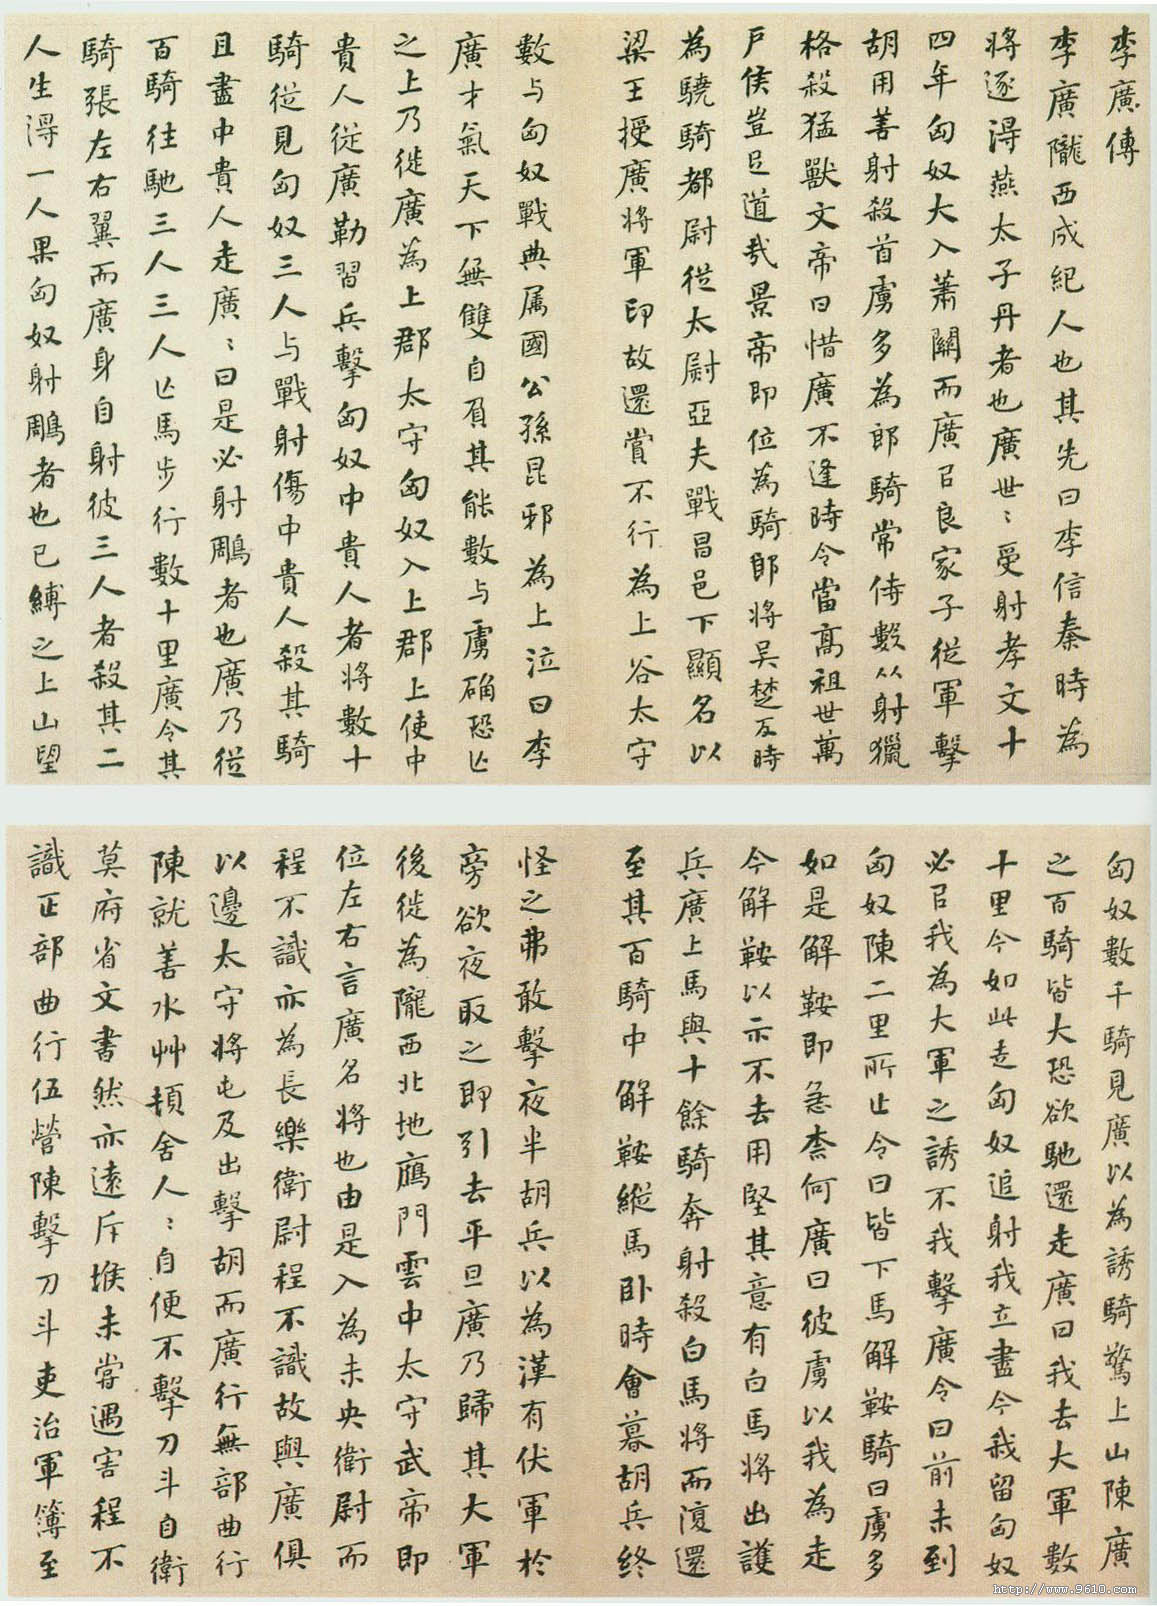 李廣傳
李廣隴西成紀人也其先曰李信秦時為
將逐得燕太子丹者也廣世〻受射孝文十
四年匈奴大入蕭關而廣㠯良家子從軍擊
胡用善射殺首虜多為郎騎常侍數從射獵
格殺猛獸文帝曰惜廣不逢時令當高祖世萬
戶侯豈㠯道哉景帝即位為騎郎將吳楚反時
為驍騎都尉從太尉亞夫戰昌邑下顯名以
梁王授廣將軍印故還賞不行為上谷太守
數与匈奴戰典属國公孫昆邪為上泣曰李
廣才氣天下無雙自負其能數与虜确恐亾
之上乃徙廣為上郡太守匈奴入上郡上使中
貴人從廣勒習兵擊匈奴中貴人者將數十
騎從見匈奴三人与戰射傷中貴人殺其騎
且盡中貴人走廣〻曰是必射鵰者也廣乃從
百騎往馳三人三人亾馬步行數十里廣令其
騎張左右翼而廣身自射彼三人者殺其二
人生得一人果匈奴射鵰者也已縛之上山望
匈奴數千騎見廣以為誘騎驚上山陳廣
之百騎皆大恐欲馳還走廣曰我去大軍數
十里今如此走匈奴追射我立盡今我留匈奴
必㠯我為大軍之誘不我擊廣令曰前未到
匈奴陳二里所止令曰皆下馬解鞍騎曰虜多
如是解鞍即急柰何廣曰彼虜以我為走
今解鞍以示不去用堅其意有白馬將出護
兵廣上馬與十餘騎奔射殺白馬將而復還
至其百騎中解鞍縱馬卧時會暮胡兵終
怪之弗敢擊夜半胡兵以為漢有伏軍於
旁欲夜取之即引去平旦廣乃歸其大軍
後徙為隴西北地鴈門雲中太守武帝即
位左右言廣名將也由是入為未央衛尉而
程不識亦為長樂衛尉程不識故與廣俱
以邊太守將屯及出擊胡而廣行無部曲行
陳就善水艸頓舍人〻自便不擊刀斗自衛
莫府省文書然亦遠斥堠未嘗遇害程不
識正部曲行伍營陳擊刀斗吏治軍簿至
http://www.9610.com